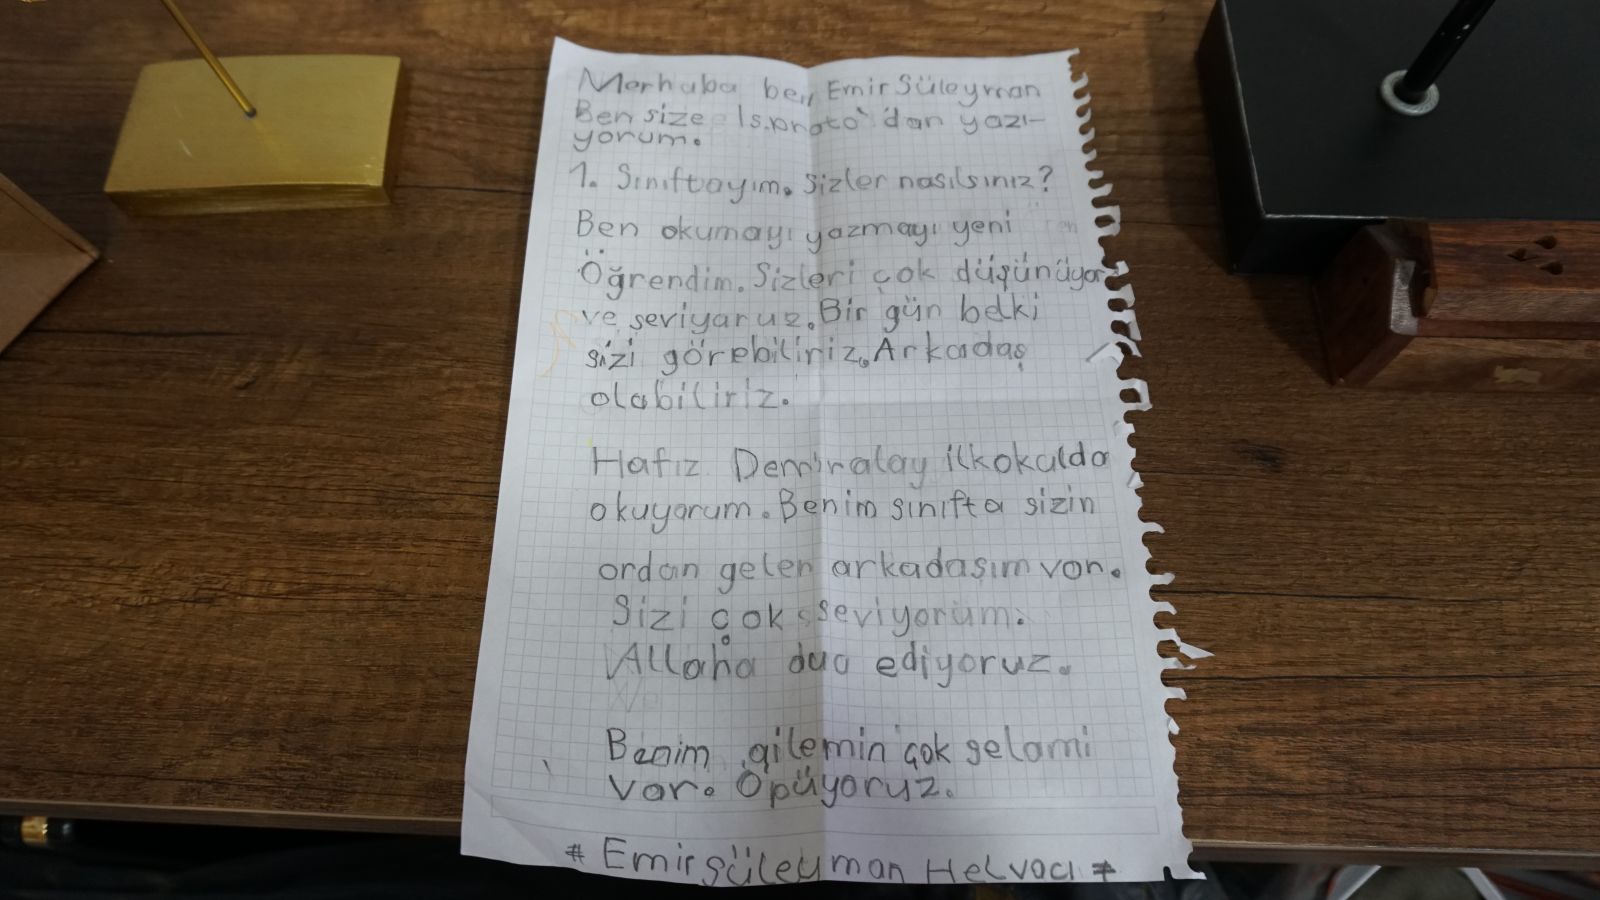 Merhaba ben Emir Süleyman
Ben size Isparato' dan yazı-
yorum.
1. Sınıftayım. Sizler nasılsınız?
Ben okumayı yazmayı yeni
Öğrendim. Sizleri çok düşünüyor
ve seviyaruz. Bir gün belki
sizi görebiliriz. Arkadaş
olabiliriz.
Hafız Demiralay ilkokulda
okuyorum. Benim sınıfta sizin
ordan gelen arkadasım var.
Sizi çok seviyorum.
Allaha dua ediyoruz.
Benim ailemin çok selami
var. Öpüyoruz.
* Emir Süleyman Helvacı *